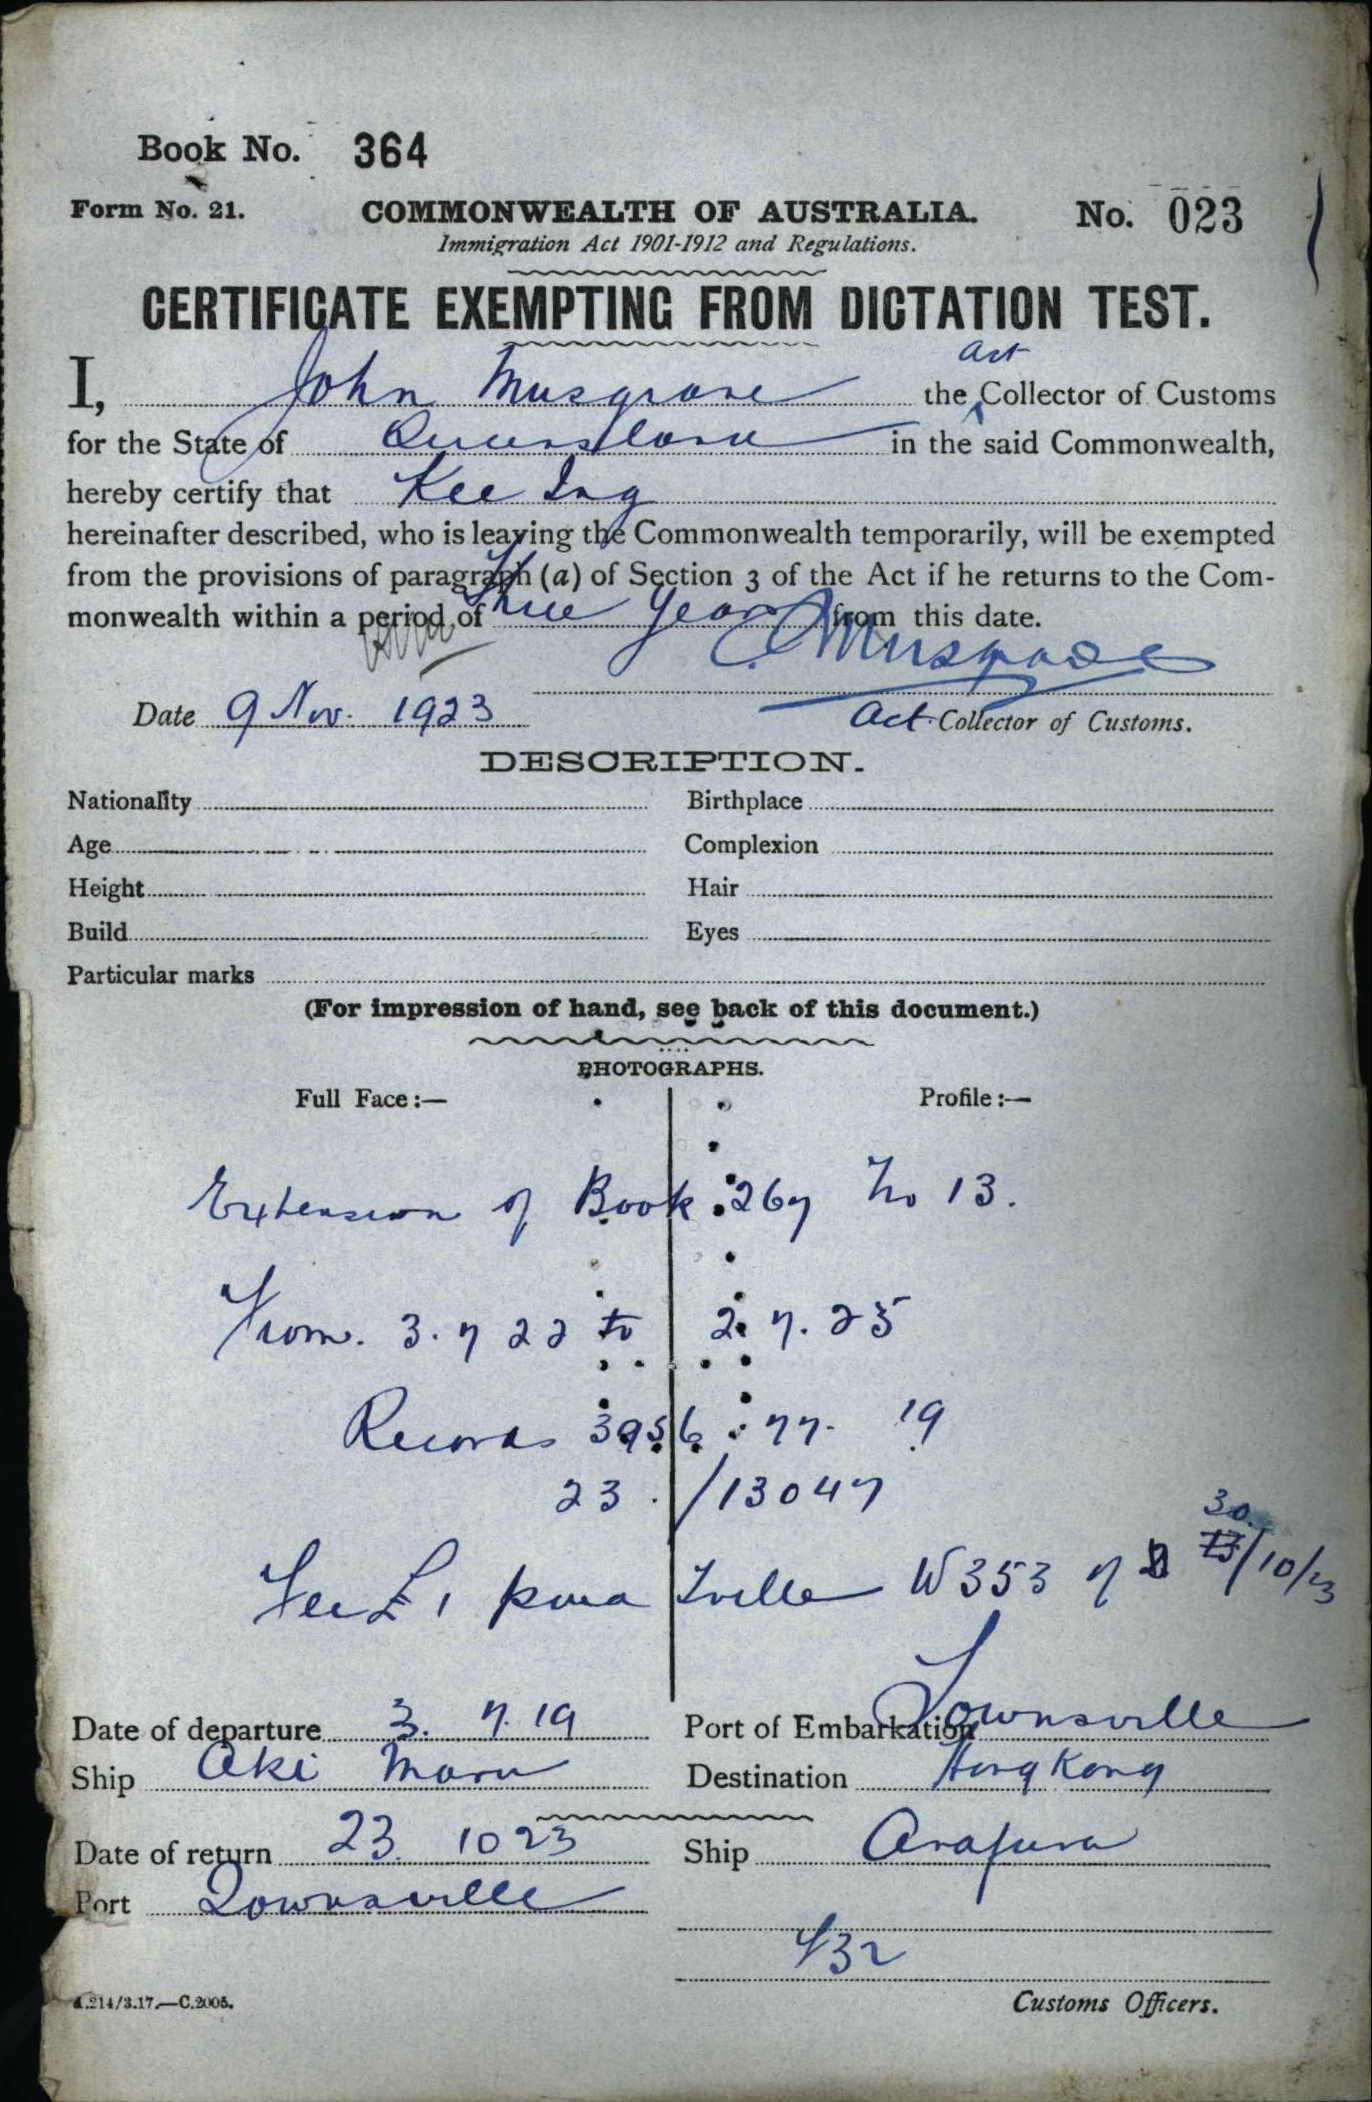 Book No. 364
Form No. 21. COMMONWEALTH OF AUSTRALIA. No. 023
Immigration Act 1901-1912 and Regulations.
CERTIFICATE EXEMPTING FROM DICTATION TEST.
Act
I, John Musgrave the Collector of Customs
for the State of Queensland in the said Commonwealth,
hereby certify that Kee Ing
hereinafter described, who is leaving the Commonwealth temporarily, will be exempted
from the provisions of paragraph (a) of Section 3 of the Act if he returns to the Com-
monwealth within a period of Three Years from this date.
Musgrave
Date 9 Nov. 1923 Act Collector of Customs.
DESCRIPTION.
Nationality Birthplace
Age Complexion
Height Hair
Build Eyes
Particular marks
(For impression of hand, see back of this document.)
PHOTOGRAPHS.
Full Face:— Profile:—
Extension of Book 267 No 13.
From. 3. 7 22 to 2. 7. 25
Records 3956 77. 19
23 /13047
30
Fee £1 pura Tville W353 of 13/10/23
Date of departure 3. 7. 19 Port of Embarkation Townsville
Ship Aki Maru Destination Hong Kong
Date of return 23. 10 23 Ship Arafura
Port Townsville
432
A.214/3.17.—C.2005. Customs Officers.